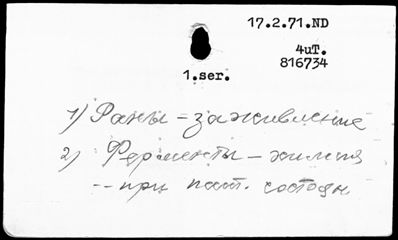 17.2.71.ND
4uT.
816734
1.ser.
1) Раны – заживление
2) Ферменты – химия
-- при пат. состоян